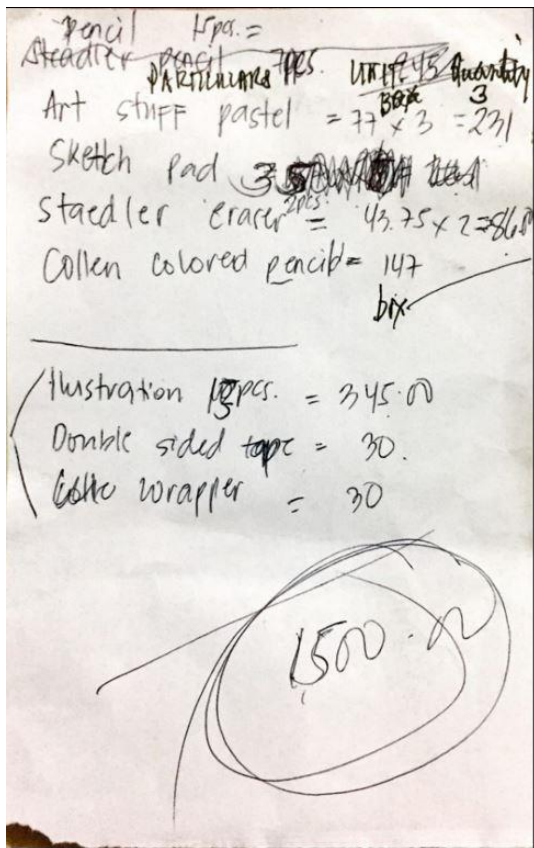 Pencil 15pcs. =
Steadler pencil 7pcs.
PARTICULARS UNIT Quantity
BOX 3
Art stuff pastel = 77 x 3 = 231
Sketch pad
Staedler eraser 2pcs. = 43.75 x 2 =
Collen colored pencil = 147
box
Ilustration pcs. = 345.00
Double sided tape = 30.
wrapper = 30
1500.00